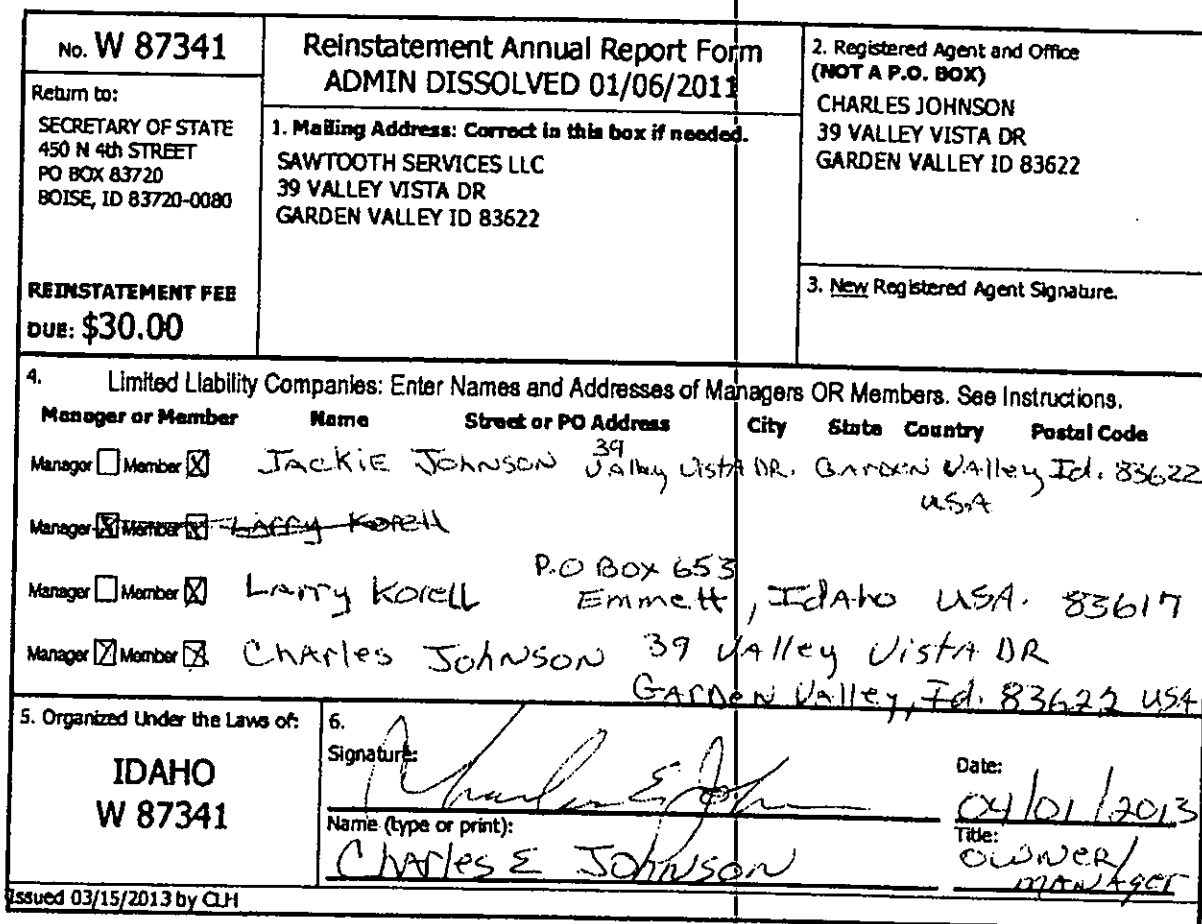 No. W 87341
Return to:
SECRETARY OF STATE
450 N 4th STREET
PO BOX 83720
BOISE, ID 83720-0080
REINSTATEMENT FEE
DUE: $30.00
Reinstatement Annual Report Form
ADMIN DISSOLVED 01/06/2011
1. Mailing Address: Correct in this box if needed.
SAWTOOTH SERVICES LLC
39 VALLEY VISTA DR
GARDEN VALLEY ID 83622
2. Registered Agent and Office
(NOT A P.O. BOX)
CHARLES JOHNSON
39 VALLEY VISTA DR
GARDEN VALLEY ID 83622
3. New Registered Agent Signature.
4. Limited Liability Companies: Enter Names and Addresses of Managers OR Members. See Instructions.
Manager or Member Name Street or PO Address City State Country Postal Code
Manager Member X Jackie Johnson 39 Valley Vista DR. Garden Valley, Id. 83622
USA
Manager X Member X Larry Korell
P.O Box 653
Manager Member X Larry Korell Emmett, Idaho USA. 83617
Manager X Member X Charles Johnson 39 Valley Vista DR
Garden Valley, Id. 83622 USA
5. Organized Under the Laws of:
IDAHO
W 87341
6.
Signature: Charles E John
Date:
04/01/2013
Name (type or print):
Charles E Johnson
Title:
Owner/
manager
Issued 03/15/2013 by CLH